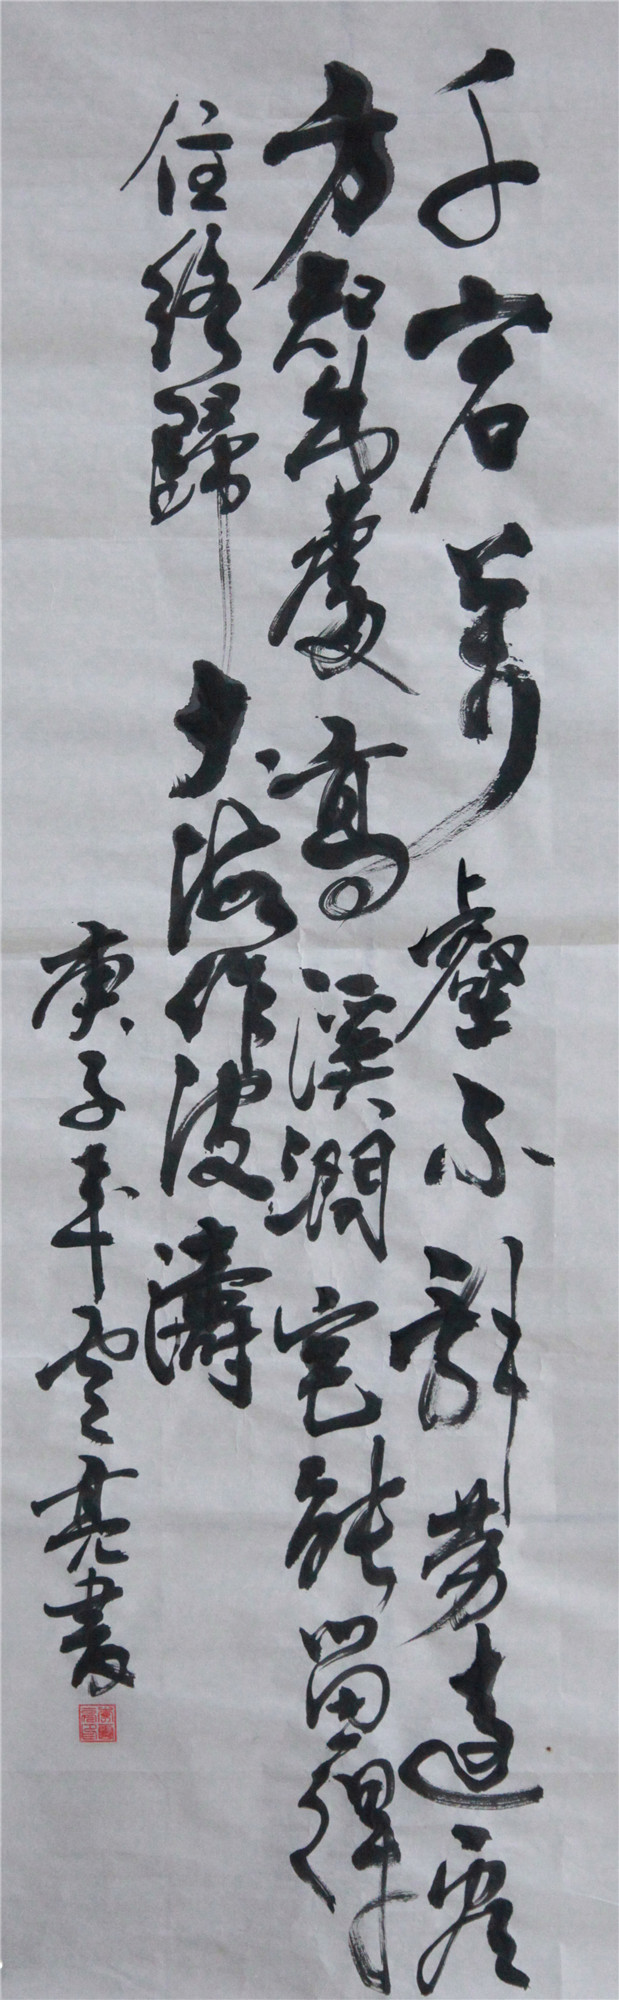 千岩萬壑不辭勞遠看
方知出處高溪澗豈能留得
住終歸大海作波濤
庚子年雲亮書